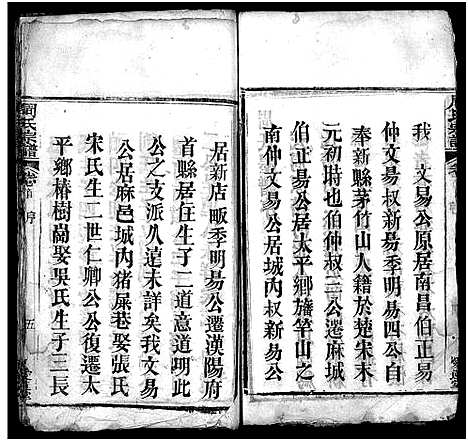 我　文易公原居南昌伯正易
仲文易叔新易季明易四公自
奉新縣茅竹山人籍於楚宋末
元初時也伯仲叔三公遷麻城
伯正易公居太平鄉旛竿山之
南仲文易公居城內叔新易公
居新店畈季明易公遷漢陽府
首縣居住生子二道意道明此
公之支派久遠未詳矣我文易
公居麻邑城內猪屎巷娶張氏
宋氏生子二世仁卿公公復遷太
平鄉椿樹崗娶吳氏生子三長
周氏宗譜
卷首
序
五